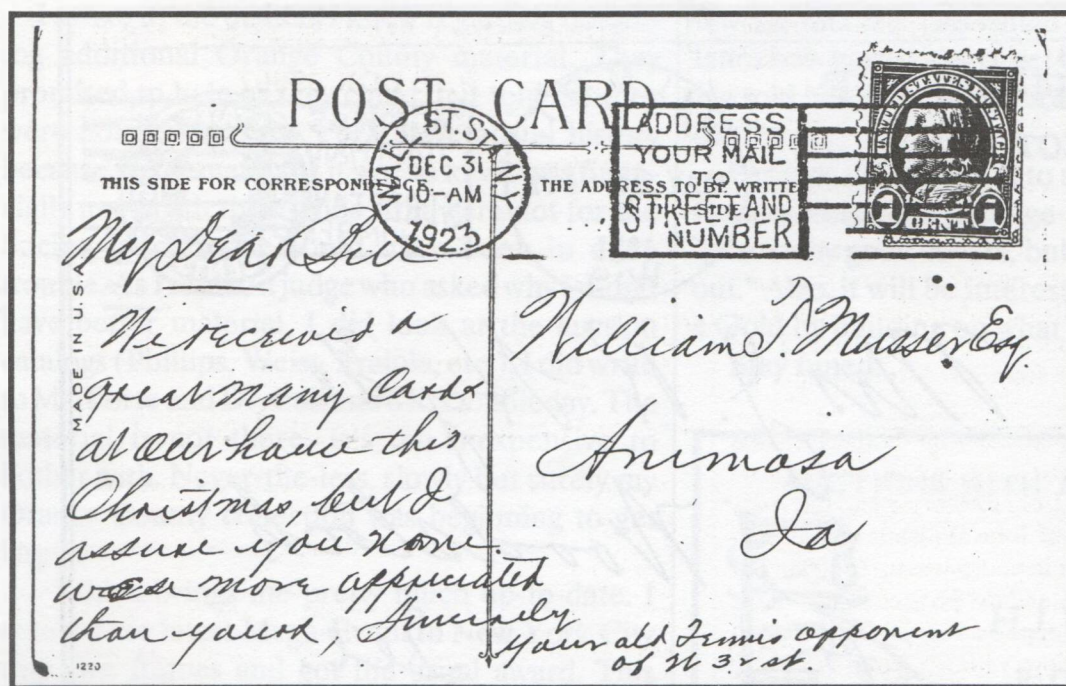 POST CARD
WALL ST. STA. N.Y.
DEC 31
-AM
1923
ADDRESS
YOUR MAIL
TO
STREET AND
NUMBER
UNITED STATES POSTAGE
CENTS
THIS SIDE FOR CORRESPOND
THE ADDRESS TO BE WRITTE
MADE IN U.S.A.
My Dear Bill
We received
great many cards
at our house this
Christmas, but I
assure you none
was more appriciated
than yours. Sincerely
your old Tennis opponent
of W 32 st.
William T. Musser Esq
Animosa
Ia
1223